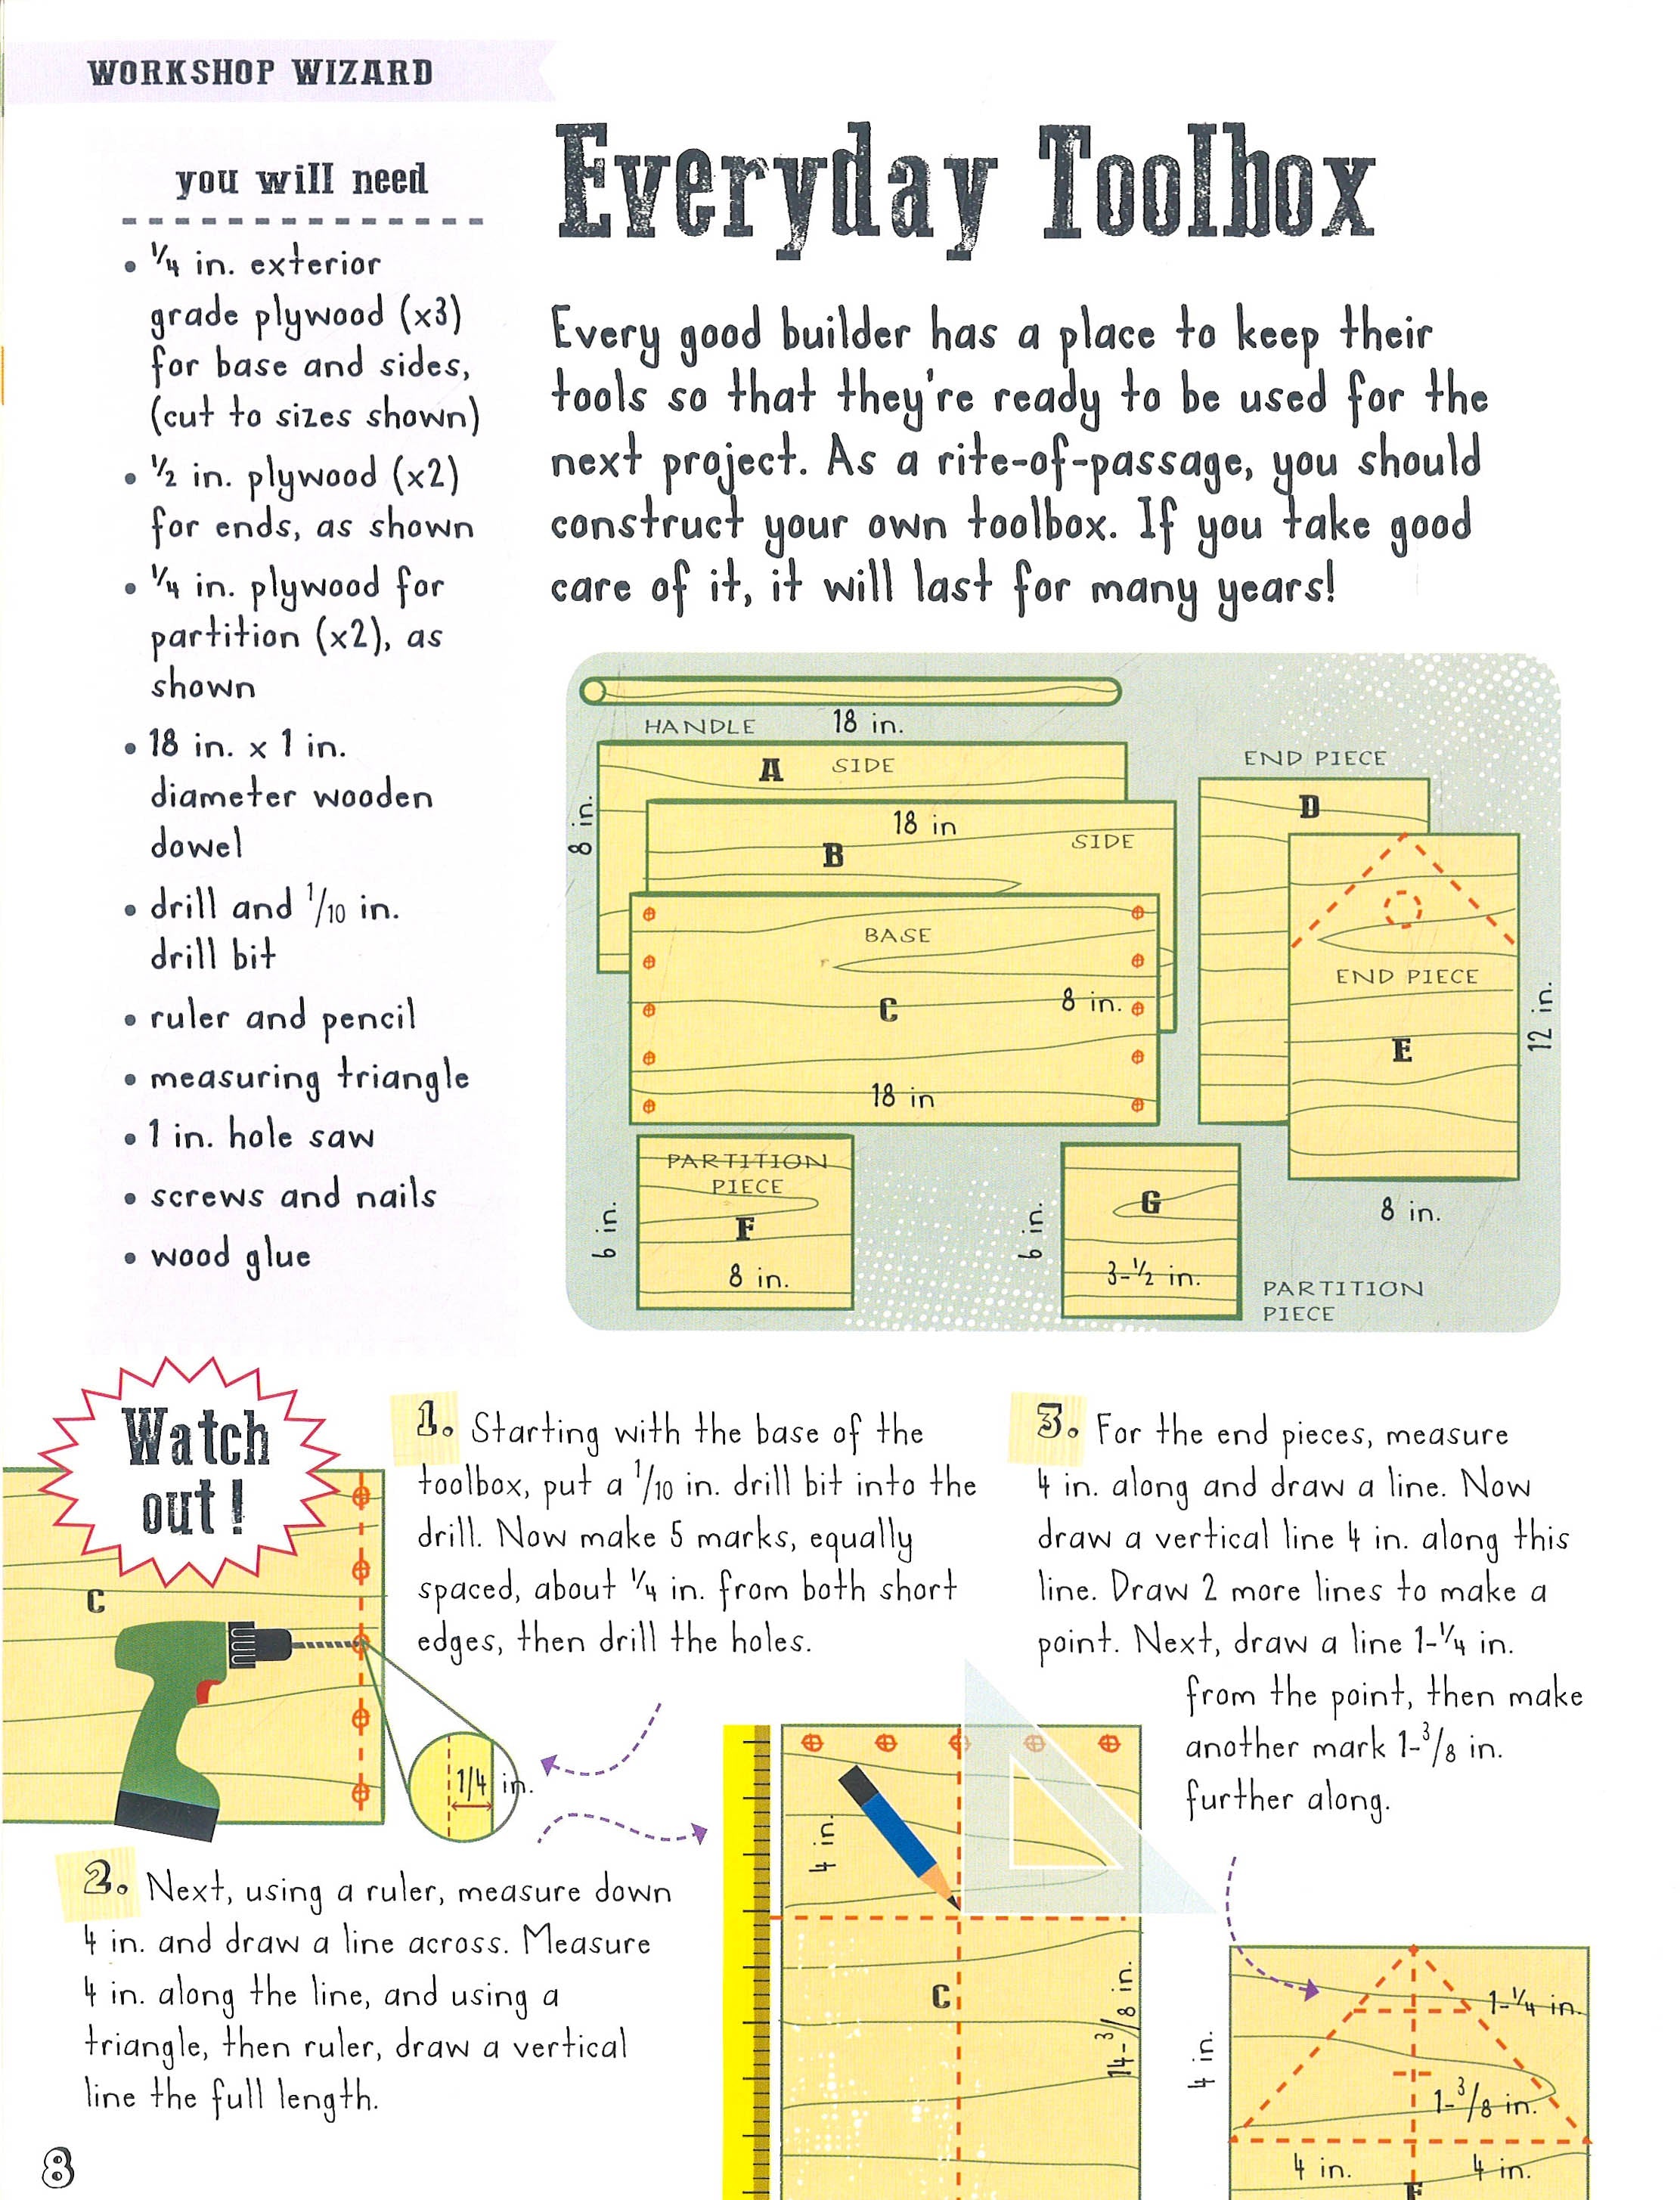 WORKSHOP WIZARD
you will need
• 1/4 in. exterior
grade plywood (x3)
for base and sides,
(cut to sizes shown)
• 1/2 in. plywood (x2)
for ends, as shown
• 1/4 in. plywood for
partition (x2), as
shown
• 18 in. x 1 in.
diameter wooden
dowel
• drill and 1/10 in.
drill bit
• ruler and pencil
• measuring triangle
• 1 in. hole saw
• screws and nails
• wood glue
Everyday Toolbox
Every good builder has a place to keep their
tools so that they're ready to be used for the
next project. As a rite-of-passage, you should
construct your own toolbox. If you take good
care of it, it will last for many years!
HANDLE 18 in.
A SIDE
8 in.
18 in
B SIDE
BASE
C 8 in.
18 in
END PIECE
D
END PIECE
E
12 in.
8 in.
PARTITION
PIECE
F
6 in.
8 in.
G
6 in.
3-1/2 in.
PARTITION
PIECE
Watch
out!
C
1/4 in.
1. Starting with the base of the
toolbox, put a 1/10 in. drill bit into the
drill. Now make 5 marks, equally
spaced, about 1/4 in. from both short
edges, then drill the holes.
2. Next, using a ruler, measure down
4 in. and draw a line across. Measure
4 in. along the line, and using a
triangle, then ruler, draw a vertical
line the full length.
4 in.
C
14-3/8 in.
3. For the end pieces, measure
4 in. along and draw a line. Now
draw a vertical line 4 in. along this
line. Draw 2 more lines to make a
point. Next, draw a line 1-1/4 in.
from the point, then make
another mark 1-3/8 in.
further along.
1-1/4 in.
4 in.
1-3/8 in.
4 in. 4 in.
8